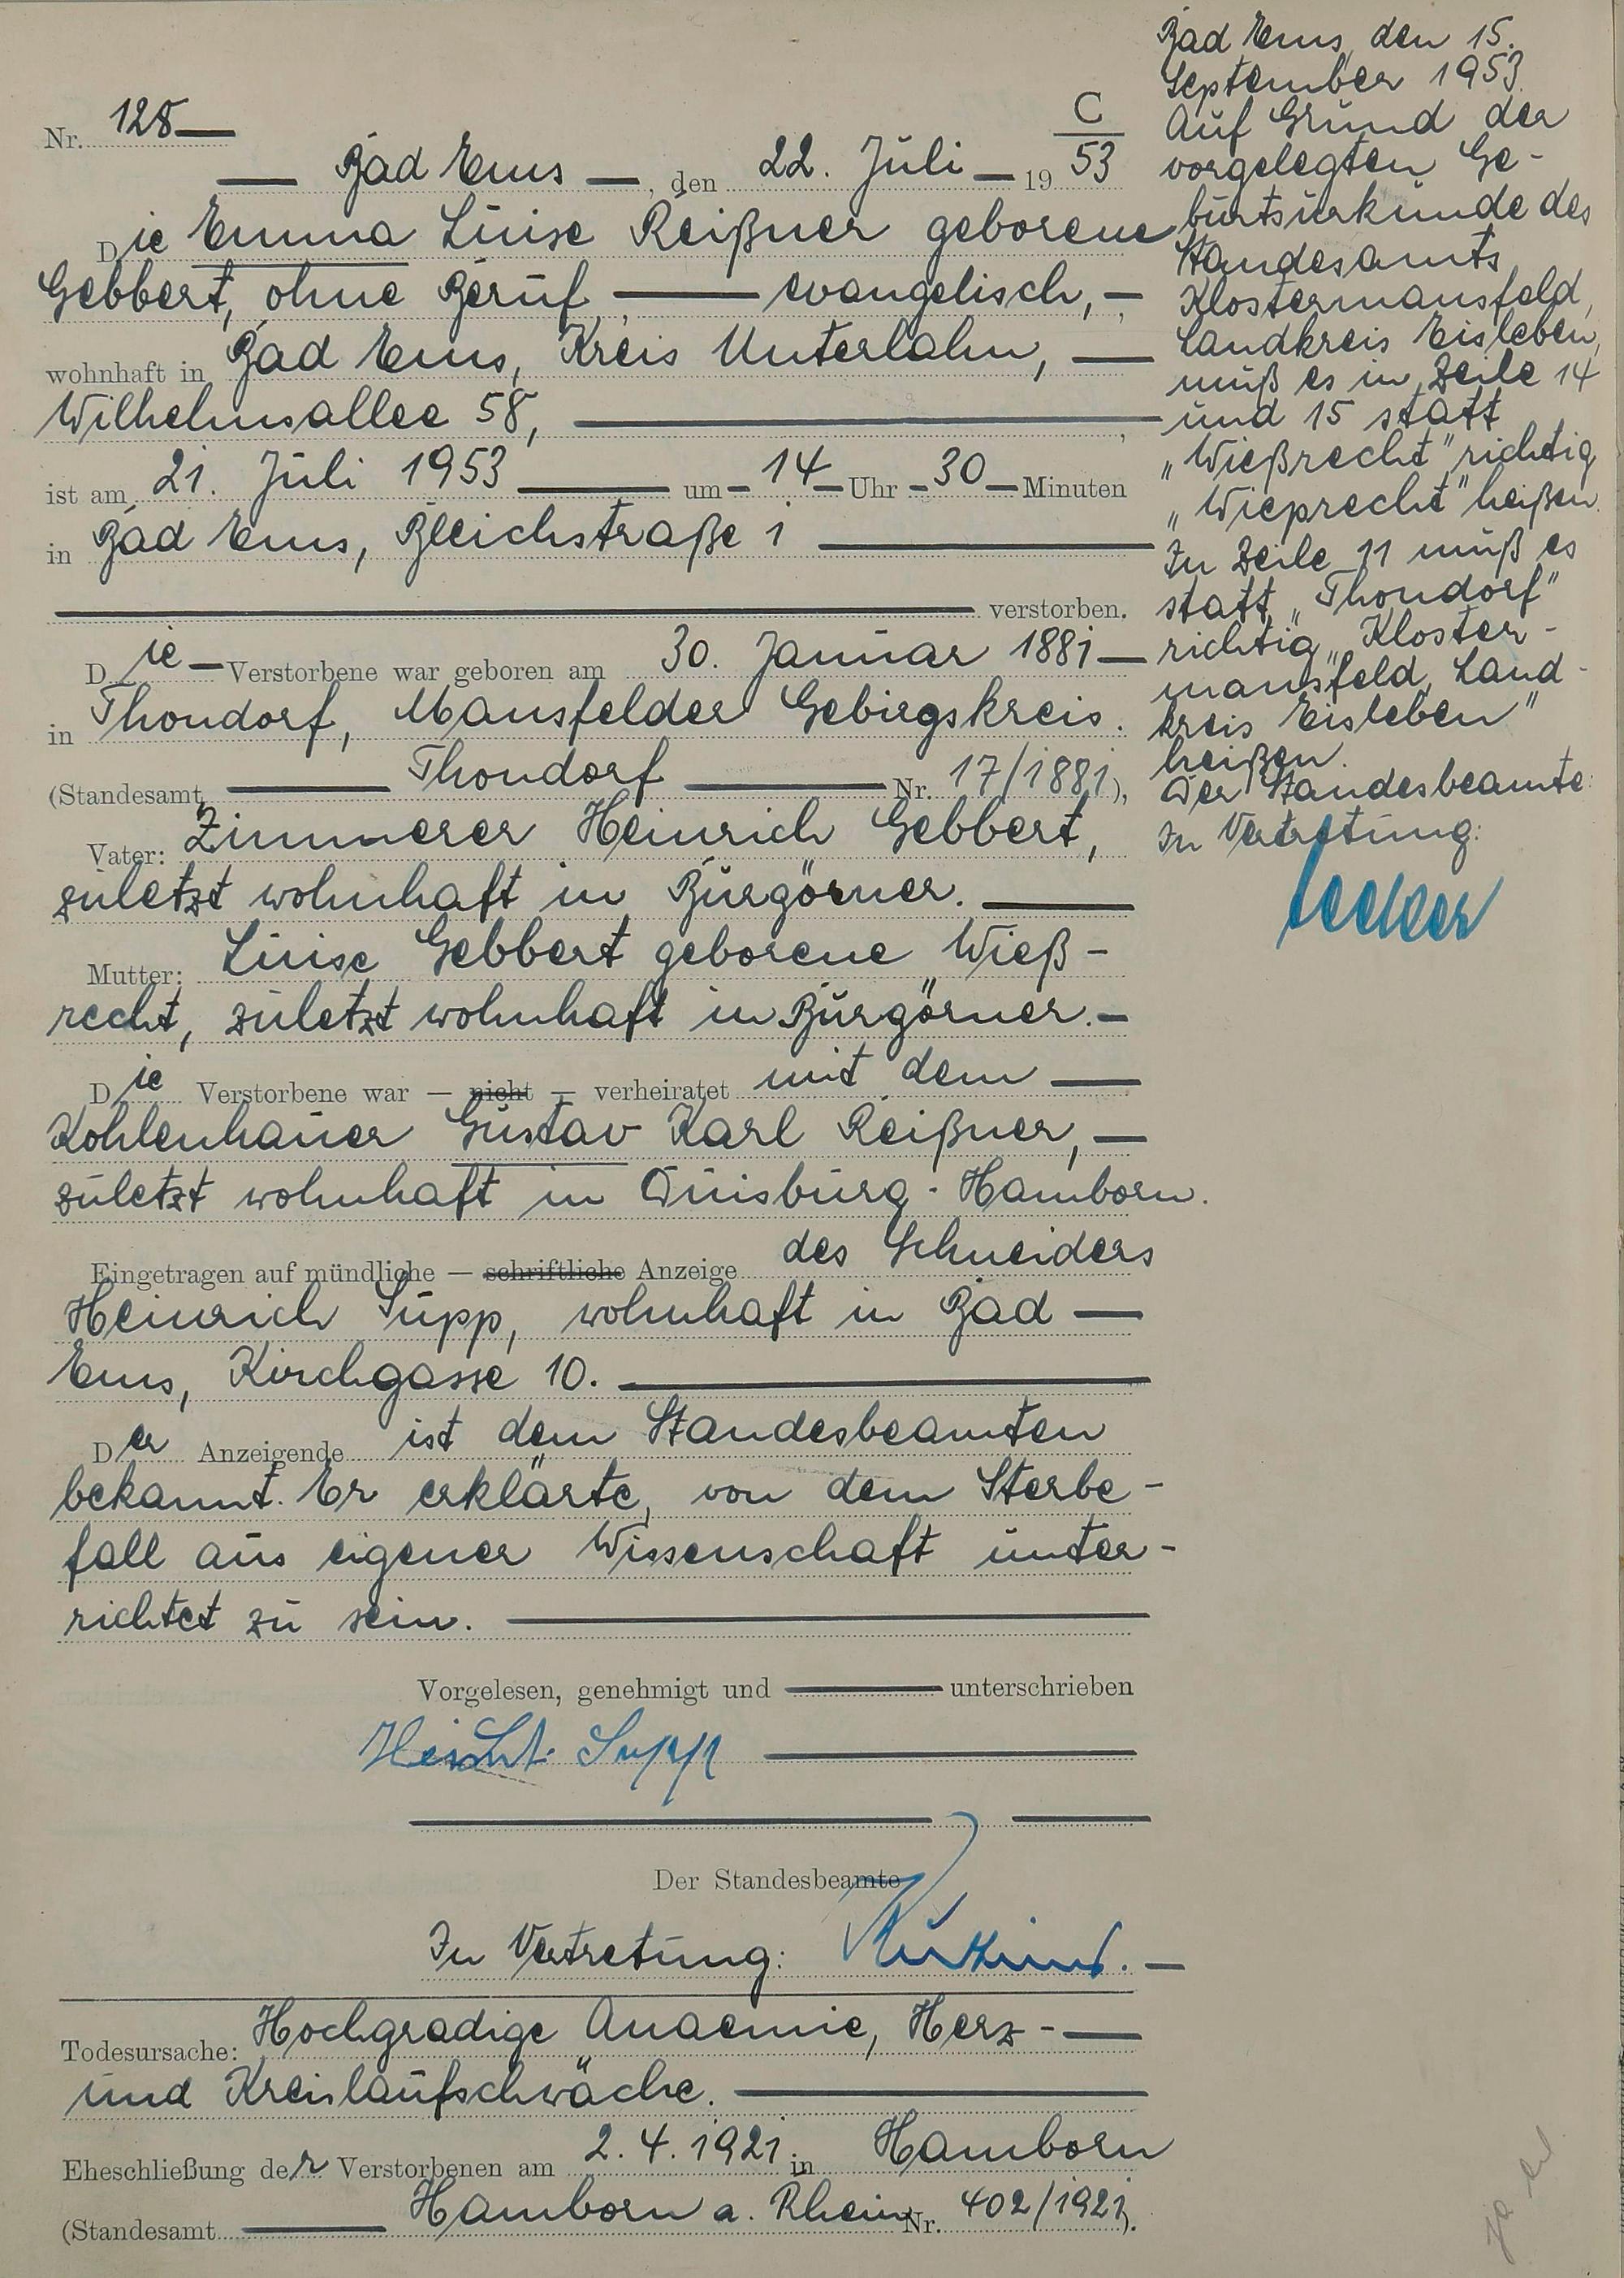 Nr. 128
C
Bad Ems, den 22. Juli 19 53
Die Emma Luise Reißner geborene
Gebbert, ohne Beruf, evangelisch,
wohnhaft in Bad Ems, Kreis Unterlahn,
Wilhelmsallee 58,
ist am 21. Juli 1953 um 14 Uhr 30 Minuten
in Bad Ems, Bleichstraße 1
verstorben.
Die Verstorbene war geboren am 30. Januar 1881
in Thondorf, Mansfelder Gebirgskreis.
(Standesamt Thondorf Nr. 17/1881),
Vater: Zimmerer Heinrich Gebbert,
zuletzt wohnhaft in Burgörner.
Mutter: Luise Gebbert geborene Wieß-
recht, zuletzt wohnhaft in Burgörner.
Die Verstorbene war — nicht — verheiratet mit dem
Kohlenhauer Gustav Karl Reißner,
zuletzt wohnhaft in Duisburg-Hamborn.
Eingetragen auf mündliche — schriftliche Anzeige des Schneiders
Heinrich Supp, wohnhaft in Bad
Ems, Kirchgasse 10.
Der Anzeigende ist dem Standesbeamten
bekannt. Er erklärte, von dem Sterbe-
fall aus eigener Wissenschaft unter-
richtet zu sein.
Vorgelesen, genehmigt und unterschrieben
Supp
Der Standesbeamte
In Vertretung:
Todesursache: Hochgradige Anaemie, Herz-
und Kreislaufschwäche.
Eheschließung der Verstorbenen am 2.4.1921 in Hamborn
(Standesamt Hamborn a. Rhein Nr. 402/1921).
Bad Ems, den 15.
September 1953.
Auf Grund der
vorgelegten Ge-
burtsurkunde des
Standesamts
Klostermansfeld,
Landkreis Eisleben,
muß es in Zeile 14
und 15 statt
„Wießrecht" richtig
„Wieprecht" heißen.
In Zeile 11 muß es
statt „Thondorf"
richtig „Kloster-
mansfeld, Land-
kreis Eisleben"
heißen.
Der Standesbeamte:
In Vertretung: